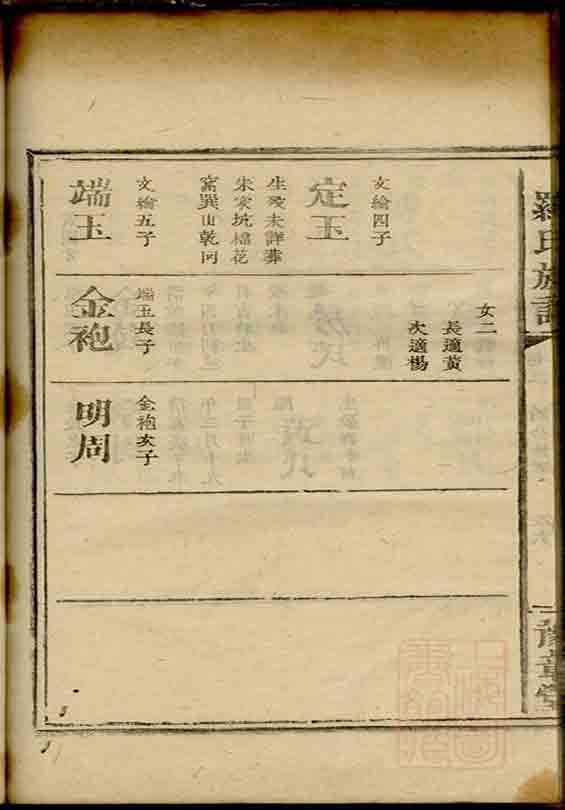 羅氏族譜
豫章堂
文繪四子
定玉
生歿未詳葬
朱家坑花
窩巽山乾向
文繪五子
端玉
女二
長適黃
次適楊
端玉長子
金袍
金袍子
明周